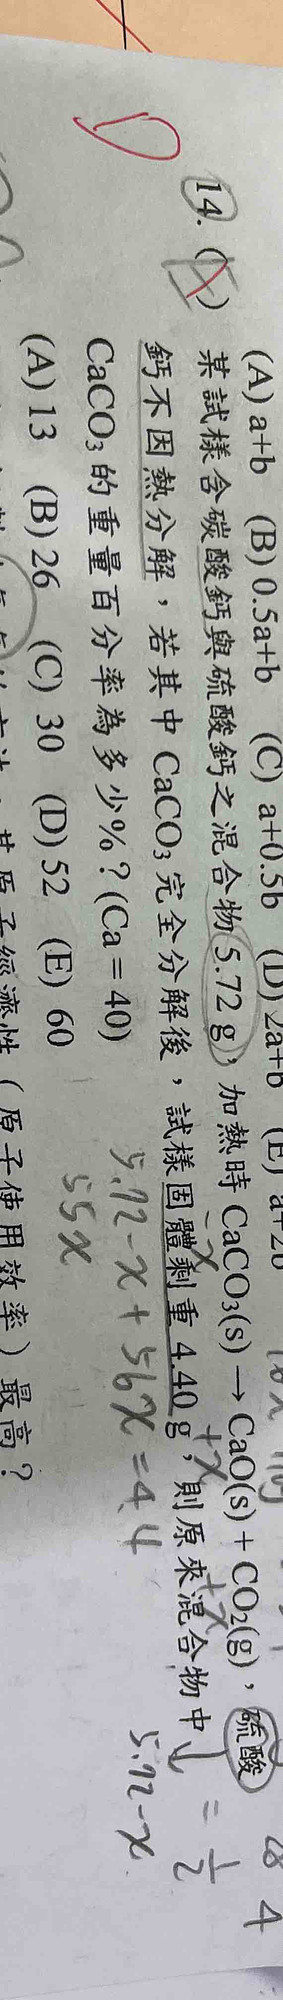 (A) a+b (B) 0.5a+b (C) a+0.5b (D) 2a+b (E) a+2b
14. ( ) 某試樣含碳酸鈣與硫酸鈣之混合物5.72 g，加熱時CaCO₃(s) → CaO(s) + CO₂(g)，硫酸
鈣不因熱分解，若其中CaCO₃完全分解後，試樣固體剩重4.40 g，則原來混合物中
CaCO₃的重量百分率為多少%？(Ca = 40)
(A) 13 (B) 26 (C) 30 (D) 52 (E) 60
其原子經濟性（原子使用效率）最高？
-x +x +x
5.72-x = 1/2
5.72-x+56x=4.4
55x